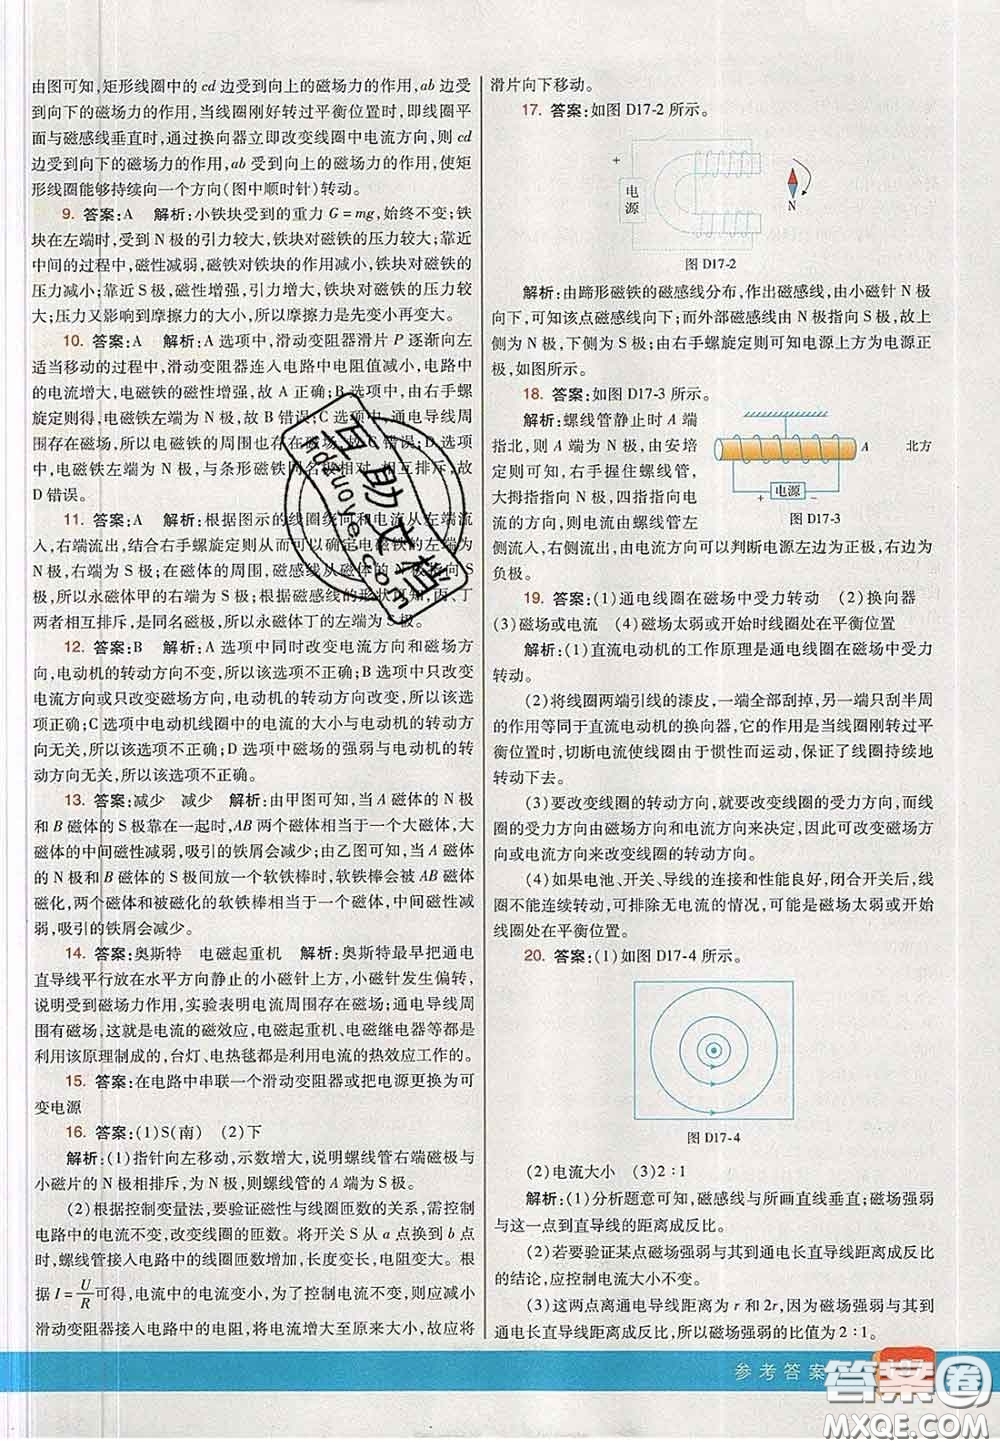 由图可知,矩形线圈中的 cd 边受到向上的磁场力的作用,ab 边受
到向下的磁场力的作用,当线圈刚好转过平衡位置时,即线圈平
面与磁感线垂直时,通过换向器立即改变线圈中电流方向,则 cd
边受到向下的磁场力的作用,ab 受到向上的磁场力的作用,使矩
形线圈能够持续向一个方向(图中顺时针)转动。
9. 答案:A 解析:小铁块受到的重力 G=mg,始终不变;铁
块在左端时,受到 N 极的引力较大,铁块对磁铁的压力较大;靠近
中间的过程中,磁性减弱,磁铁对铁块的作用减小,铁块对磁铁的
压力减小;靠近 S 极,磁性增强,引力增大,铁块对磁铁的压力变
大;压力又影响到摩擦力的大小,所以摩擦力是先变小再变大。
10. 答案:A 解析:A 选项中,滑动变阻器滑片 P 逐渐向左
适当移动的过程中,滑动变阻器连入电路中电阻值减小,电路中
的电流增大,电磁铁的磁性增强,故 A 正确;B 选项中,由右手螺
旋定则得,电磁铁左端为 N 极,故 B 错误;C 选项中,通电导线周
围存在磁场,所以电磁铁的周围也存在磁场,故 C 错误;D 选项
中,电磁铁左端为 N 极,与条形磁铁同名极相对,相互排斥,故
D 错误。
11. 答案:A 解析:根据图示的线圈绕向和电流从左端流
入,右端流出,结合右手螺旋定则可以确定电磁铁的左端为
N 极,右端为 S 极;在磁体的周围,磁感线从磁体的 N 极指向 S
极,所以永磁体甲的右端为 S 极;根据磁感线的形状可知,丙、丁
两者相互排斥,是同名磁极,所以永磁体丁的左端为 S 极。
12. 答案:B 解析:A 选项中同时改变电流方向和磁场方
向,电动机的转动方向不变,所以该选项不正确;B 选项中只改变
电流方向或只改变磁场方向,电动机的转动方向改变,所以该选
项正确;C 选项中电动机线圈中的电流的大小与电动机的转动方
向无关,所以该选项不正确;D 选项中磁场的强弱与电动机的转
动方向无关,所以该选项不正确。
13. 答案:减少 减少 解析:由甲图可知,当 A 磁体的 N 极
和 B 磁体的 S 极靠在一起时,AB 两个磁体相当于一个大磁体,大
磁体的中间磁性减弱,吸引的铁屑会减少;由乙图可知,当 A 磁体
的 N 极和 B 磁体的 S 极间放一个软铁棒时,软铁棒被 AB 磁体
磁化,两个磁体和被磁化的软铁棒相当于一个磁体,中间磁性减
弱,吸引的铁屑会减少。
14. 答案:奥斯特 电磁起重机 解析:奥斯特最早把通电
直导线平行放在水平方向静止的小磁针上方,小磁针发生偏转,
说明受到磁场力作用,实验表明电流周围存在磁场;通电导线周
围有磁场,这就是电流的磁效应,电磁起重机、电磁继电器等都是
利用该原理制成的,台灯、电热毯都是利用电流的热效应工作的。
15. 答案:在电路中串联一个滑动变阻器或把电源更换为可
变电源
16. 答案:(1)S(南) (2)下
解析:(1)指针向左移动,示数增大,说明螺线管右端磁极与
小磁片的 N 极相排斥,为 N 极,则螺线管的左端为 S 极。
(2)根据控制变量法,要验证磁性与线圈匝数的关系,需控制
电路中的电流不变,改变线圈的匝数。将开关 S 从 a 点换到 b 点
时,螺线管接入电路中的线圈匝数增加,长度变长,电阻变大。根
据 I=U/R可得,电流中的电流变小,为了控制电流不变,则应减小
滑动变阻器接入电路中的电阻,将电流增大至原来大小,故应将
滑片向下移动。
17. 答案:如图 D17-2 所示。
+
电源
-
N
图 D17-2
解析:由蹄形磁铁的磁感线分布,作出磁感线,由小磁针 N 极
向下,可知该点磁感线向下;而外部磁感线由 N 极指向 S 极,故上
侧为 N 极,下侧为 S 极;由右手螺旋定则可知电源上方为电源正
极,如图所示。
18. 答案:如图 D17-3 所示。
解析:螺线管静止时 A 端
指北,则 A 端为 N 极,由安培
定则可知,右手握住螺线管,
大拇指指向 N 极,四指指向电
流的方向,则电流由螺线管左
A 北方
+ 电源 -
图 D17-3
侧流入,右侧流出,由电流方向可以判断电源左边为正极,右边为
负极。
19. 答案:(1)通电线圈在磁场中受力转动 (2)换向器
(3)磁场或电流 (4)磁场太弱或开始时线圈处在平衡位置
解析:(1)直流电动机的工作原理是通电线圈在磁场中受力
转动。
(2)将线圈两端引线的漆皮,一端全部刮掉,另一端只刮半周
的作用等同于直流电动机的换向器,它的作用是当线圈刚转过平
衡位置时,切断电流使线圈由于惯性而运动,保证了线圈持续地
转动下去。
(3)要改变线圈的转动方向,就要改变线圈的受力方向,而线
圈的受力方向由磁场方向和电流方向来决定,因此可改变磁场方
向或电流方向来改变线圈的转动方向。
(4)如果电池、开关、导线的连接和性能良好,闭合开关后,线
圈不能连续转动,可排除无电流的情况,可能是磁场太弱或开始时
线圈处在平衡位置。
20. 答案:(1)如图 D17-4 所示。
图 D17-4
(2)电流大小 (3)2:1
解析:(1)分析题意可知,磁感线与所画直线垂直;磁场强弱
与这一点到直导线的距离成反比。
(2)若要验证某点磁场强弱与其到通电长直导线距离成反比
的结论,应控制电流大小不变。
(3)这两点离通电导线距离为 r 和 2r,因为磁场强弱与其到
通电长直导线距离成反比,所以磁场强弱的比值为 2:1。
互助文档
Hdzuoye.com
参考答案
答案卷
MXQE.COM